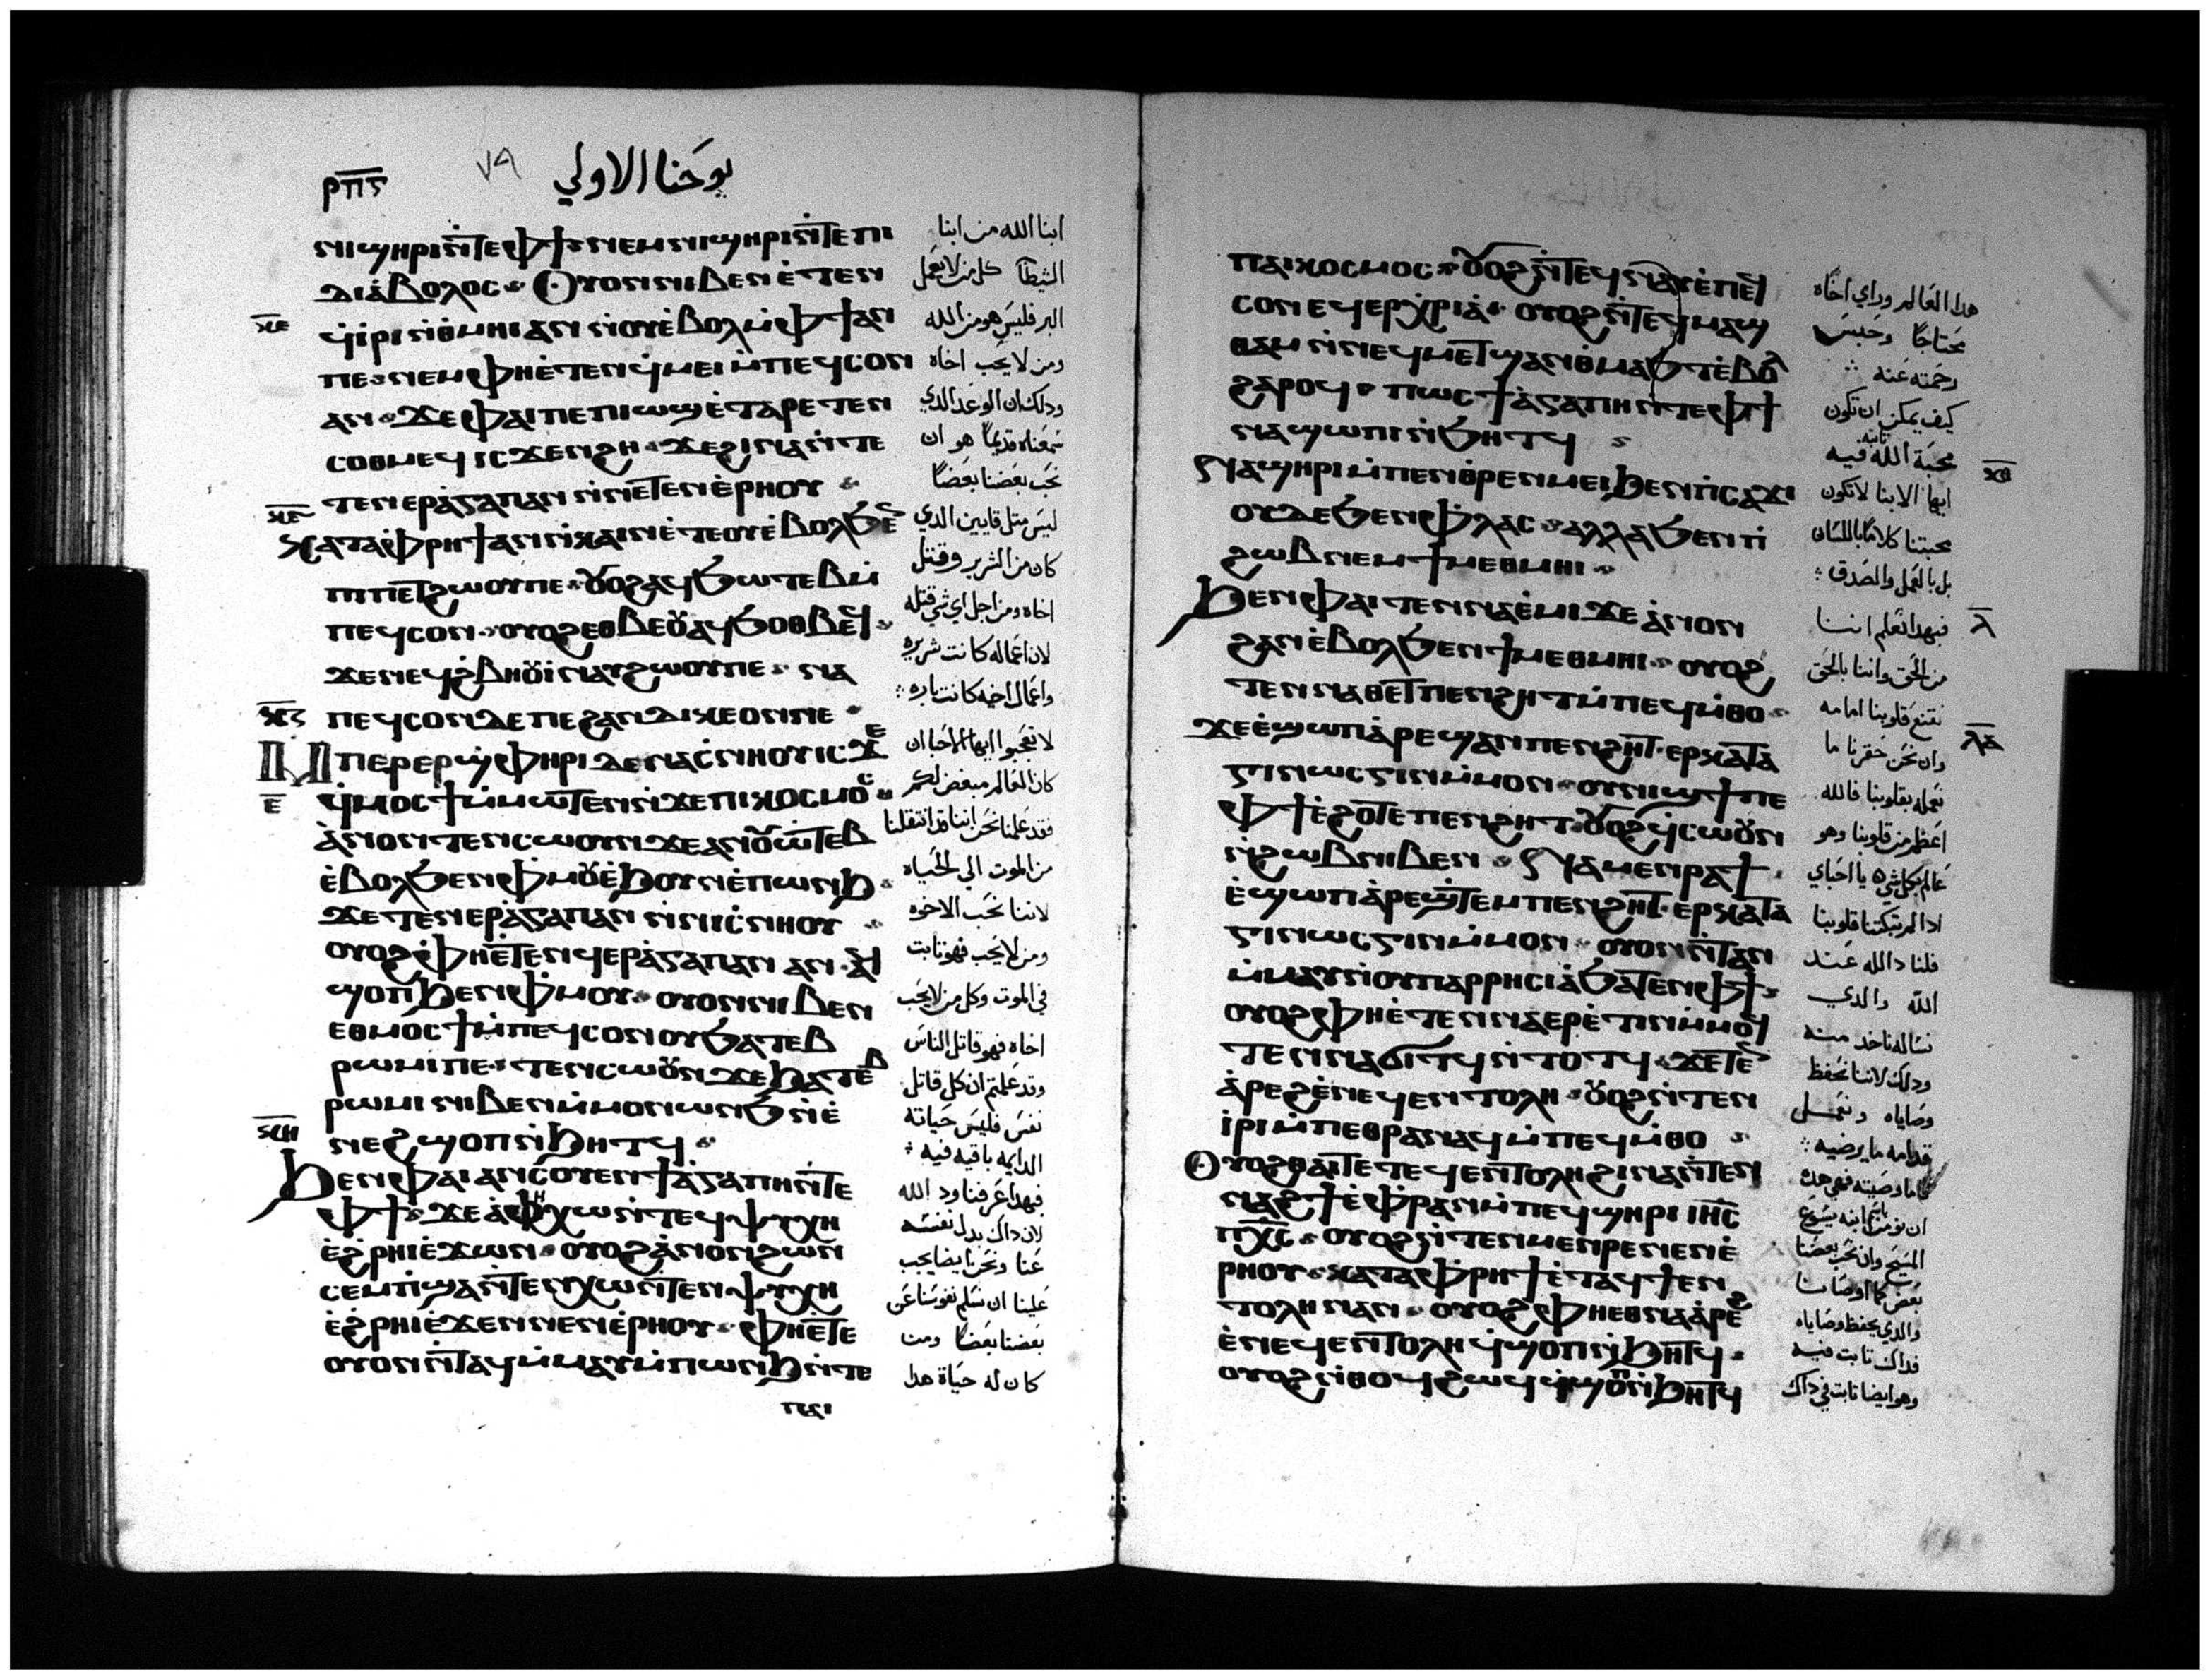 ⲣⲡⲋ ٧٩ يوحنا الاولي
ⲛⲓϣⲏⲣⲓ ⲛ̀ⲧⲉ ⲫϯ ⲛⲉⲙ ⲛⲓϣⲏⲣⲓ ⲛ̀ⲧⲉ ⲡⲓ
ⲇⲓⲁ̀ⲃⲟⲗⲟⲥ Ⲟⲩⲟⲛ ⲛⲓⲃⲉⲛ ⲉ̀ⲧⲉⲛ
ϥ̀ⲓ̀ⲣⲓ ⲛ̀ⲑⲙⲏⲓ ⲁⲛ ⲛ̀ⲟⲩⲉ̀ⲃⲟⲗ ⲙ̀ⲫϯ ⲁⲛ
ⲡⲉ ⲛⲉⲙ ⲫⲏⲉ̀ⲧⲉⲛϥ̀ⲙⲉⲓ ⲙ̀ⲡⲉϥⲥⲟⲛ
ⲁⲛ ϫⲉ ⲫⲁⲓ ⲡⲉ ⲡⲓⲱϣ ⲉ̀ⲧⲁⲣⲉⲧⲉⲛ
ⲥⲟⲑⲙⲉϥ ⲓⲥϫⲉⲛ ϩⲏ ϫⲉ ϩⲓⲛⲁ ⲛ̀ⲧⲉ
ⲧⲉⲛⲉⲣⲁ̀ⲅⲁⲡⲁⲛ ⲛ̀ⲛⲉⲧⲉⲛⲉ̀ⲣⲏⲟⲩ
ⲕⲁⲧⲁⲫⲣⲏϯ ⲁⲛ ⲛ̀ⲕⲁⲓⲛ ⲉ̀ⲧⲉ ⲟⲩⲉ̀ⲃⲟⲗ ϧⲉⲛ
ⲡⲓⲡⲉⲧϩⲱⲟⲩ ⲡⲉ ⲟⲩⲟϩ ⲁϥϧⲱⲧⲉⲃ ⲙ̀
ⲡⲉϥⲥⲟⲛ ⲟⲩⲟϩ ⲉⲑⲃⲉⲟⲩ ⲁϥϧⲟⲑⲃⲉϥ
ϫⲉ ⲛⲉϥϩ̀ⲃⲏⲟⲩⲓ̀ ⲛⲁⲩϩⲱⲟⲩ ⲡⲉ ⲛⲁ
ⲡⲉϥⲥⲟⲛ ⲇⲉ ⲡⲉ ϩⲁⲛⲇⲓⲕⲉⲟⲛ ⲛⲉ
Ⲙⲡⲉⲣⲉⲣϣ̀ⲫⲏⲣⲓ ⲇⲉ ⲛⲁⲥ̀ⲛⲏⲟⲩ ⲓⲥϫⲉ
ϥ̀ⲙⲟⲥϯ ⲙ̀ⲙⲱⲧⲉⲛ ⲛ̀ϫⲉ ⲡⲓⲕⲟⲥⲙⲟⲥ
ⲁ̀ⲛⲟⲛ ⲧⲉⲛⲥⲱⲟⲩⲛ ϫⲉ ⲁⲛⲟⲩⲱ̀ⲧⲉⲃ
ⲉ̀ⲃⲟⲗ ϧⲉⲛ ⲫ̀ⲙⲟⲩ ⲉ̀ϧⲟⲩⲛ ⲉ̀ⲡⲱⲛϧ
ϫⲉ ⲧⲉⲛⲉⲣⲁ̀ⲅⲁⲡⲁⲛ ⲛ̀ⲛⲓⲥ̀ⲛⲏⲟⲩ
ⲟⲩⲟϩ ⲫⲏⲉ̀ⲧⲉⲛϥⲉⲣⲁ̀ⲅⲁⲡⲁⲛ ⲁⲛ ⲁϥ
ϣⲟⲡ ϧⲉⲛ ⲫ̀ⲙⲟⲩ ⲟⲩⲟⲛ ⲛⲓⲃⲉⲛ
ⲉⲑⲙⲟⲥϯ ⲙ̀ⲡⲉϥⲥⲟⲛ ⲟⲩϧⲁⲧⲉⲃ
ⲣⲱⲙⲓ ⲡⲉ ⲧⲉⲛⲥⲱⲟⲩⲛ ϫⲉ ϧⲁⲧⲉⲃ
ⲣⲱⲙⲓ ⲛⲓⲃⲉⲛ ⲙ̀ⲙⲟⲛ ⲱⲛϧ ⲛ̀ⲉ̀
ⲛⲉϩ ϣⲟⲡ ⲛ̀ϧⲏⲧϥ
ϧⲉⲛ ⲫⲁⲓ ⲁⲛⲥⲟⲩⲉⲛ ϯⲁ̀ⲅⲁⲡⲏ ⲛ̀ⲧⲉ
ⲫϯ ϫⲉ ⲁ̀ ⲫⲏ ⲭⲱ ⲛ̀ⲧⲉϥⲯⲩⲭⲏ
ⲉ̀ϩ̀ⲣⲏⲓ ⲉ̀ϫⲱⲛ ⲟⲩⲟϩ ⲁ̀ⲛⲟⲛ ϩⲱⲛ
ⲥⲉⲙⲡ̀ϣⲁ ⲛ̀ⲧⲉⲛⲭⲱ ⲛ̀ⲧⲉⲛⲯⲩⲭⲏ
ⲉ̀ϩ̀ⲣⲏⲓ ⲉ̀ϫⲉⲛ ⲛⲉⲛⲉ̀ⲣⲏⲟⲩ ⲫⲏⲉ̀ⲧⲉ
ⲟⲩⲟⲛ ⲛ̀ⲧⲁϥ ⲙ̀ⲙⲁⲩ ⲙ̀ⲡⲱⲛϧ ⲛ̀ⲧⲉ
ⲡⲁⲓ
ابنا الله من ابنا
الشيطان كل من لا يعمل
البر فليس هو من الله
ومن لا يحب اخاه
ودلك ان الوعد الدي
سمعناه قديما هو ان
نحب بعضنا بعضا
ليس متل قايين الدي
كان من الشرير وقتل
اخاه ومن اجل اي شي قتله
لان اعماله كانت شريره
واعمال اخيه كانت باره
لا تعجبوا ايها الاحبا ان
كان العالم مبغض لكم
فقد علمنا نحن اننا قد انتقلنا
من الموت الى الحياه
لاننا نحب الاخوه
ومن لا يحب فهو تابت
في الموت وكل من لا يحب
اخاه فهو قاتل الناس
وقد علمتم ان كل قاتل
نفس فليس حياته
الدايمه باقيه فيه
فبهدا عرفنا ود الله
لان داك بدل نفسه
عنا ونحن ايضا يجب
علينا ان نسلم نفوسنا عن
بعضنا بعضا ومن
كان له حياة هدا
ⲡⲁⲓⲕⲟⲥⲙⲟⲥ ⲟⲩⲟϩ ⲛ̀ⲧⲉϥⲛⲁⲩ ⲉ̀ⲡⲉϥ
ⲥⲟⲛ ⲉϥⲉⲣⲭ̀ⲣⲓⲁ̀ ⲟⲩⲟϩ ⲛ̀ⲧⲉϥⲙⲁϣ
ⲑⲁⲙ ⲛ̀ⲛⲉϥⲙⲉⲧϣⲁⲛⲑⲙⲁϧⲧ ⲉ̀ⲃⲟⲗ
ϩⲁⲣⲟϥ ⲡⲱⲥ ϯⲁ̀ⲅⲁⲡⲏ ⲛ̀ⲧⲉ ⲫϯ
ⲛⲁϣⲱⲡⲓ ⲛ̀ϧⲏⲧϥ
Ⲛⲁϣⲏⲣⲓ ⲙ̀ⲡⲉⲛⲑⲣⲉⲛⲙⲉⲓ ϧⲉⲛ ⲡ̀ⲥⲁϫⲓ
ⲟⲩⲇⲉ ϧⲉⲛ ⲫ̀ⲗⲁⲥ ⲁⲗⲗⲁ ϧⲉⲛ ⲡⲓ
ϩⲱⲃ ⲛⲉⲙ ϯⲙⲉⲑⲙⲏⲓ
ϧⲉⲛ ⲫⲁⲓ ⲧⲉⲛⲛⲁⲉ̀ⲙⲓ ϫⲉ ⲁ̀ⲛⲟⲛ
ϩⲁⲛⲉ̀ⲃⲟⲗ ϧⲉⲛ ϯⲙⲉⲑⲙⲏⲓ ⲟⲩⲟϩ
ⲧⲉⲛⲛⲁⲑⲉⲧ ⲡⲉⲛϩⲏⲧ ⲙ̀ⲡⲉϥⲙ̀ⲑⲟ
ϫⲉ ⲉ̀ϣⲱⲡ ⲁ̀ⲣⲉϣⲁⲛ ⲡⲉⲛϩⲏⲧ ⲉⲣⲕⲁⲧⲁ
ⲅⲓⲛⲱⲥⲅⲓⲛ ⲙ̀ⲙⲟⲛ ⲟⲩⲛⲓϣϯ ⲡⲉ
ⲫϯ ⲉ̀ϩⲟⲧⲉ ⲡⲉⲛϩⲏⲧ ⲟⲩⲟϩ ϥ̀ⲥⲱⲟⲩⲛ
ⲛ̀ϩⲱⲃ ⲛⲓⲃⲉⲛ Ⲛⲁⲙⲉⲛⲣⲁϯ
ⲉ̀ϣⲱⲡ ⲁ̀ⲣⲉϣ̀ⲧⲉⲙ ⲡⲉⲛϩⲏⲧ ⲉⲣⲕⲁⲧⲁ
ⲅⲓⲛⲱⲥⲅⲓⲛ ⲙ̀ⲙⲟⲛ ⲟⲩⲟⲛ ⲛ̀ⲧⲁⲛ
ⲙ̀ⲙⲁⲩ ⲛ̀ⲟⲩⲡⲁⲣⲣⲏⲥⲓⲁ̀ ϧⲁⲧⲉⲛ ⲫϯ
ⲟⲩⲟϩ ⲫⲏⲉ̀ⲧⲉⲛⲛⲁⲉⲣⲉ̀ⲧⲓⲛ ⲙ̀ⲙⲟϥ
ⲧⲉⲛⲛⲁϭⲓⲧϥ ⲛ̀ⲧⲟⲧϥ ϫⲉ ⲧⲉⲛ
ⲁ̀ⲣⲉϩ ⲉ̀ⲛⲉϥⲉⲛⲧⲟⲗⲏ ⲟⲩⲟϩ ⲛ̀ⲧⲉⲛ
ⲓ̀ⲣⲓ ⲙ̀ⲡⲉⲑⲣⲁⲛⲁϥ ⲙ̀ⲡⲉϥⲙ̀ⲑⲟ
Ⲟⲩⲟϩ ⲑⲁⲓ ⲧⲉ ⲧⲉϥⲉⲛⲧⲟⲗⲏ ϩⲓⲛⲁ ⲛ̀ⲧⲉⲛ
ⲛⲁϩϯ ⲉ̀ⲫ̀ⲣⲁⲛ ⲙ̀ⲡⲉϥϣⲏⲣⲓ ⲓⲏⲥ
ⲡⲭⲥ ⲟⲩⲟϩ ⲛ̀ⲧⲉⲛⲙⲉⲛⲣⲉ ⲛⲉⲛⲉ̀
ⲣⲏⲟⲩ ⲕⲁⲧⲁⲫⲣⲏϯ ⲉ̀ⲧⲁϥϯ ⲉⲛ
ⲧⲟⲗⲏ ⲛⲁⲛ ⲟⲩⲟϩ ⲫⲏⲉⲑⲛⲁⲁ̀ⲣⲉϩ
ⲉ̀ⲛⲉϥⲉⲛⲧⲟⲗⲏ ϥ̀ϣⲟⲡ ⲛ̀ϧⲏⲧϥ
ⲟⲩⲟϩ ⲛ̀ⲑⲟϥ ϩⲱϥ ϥ̀ϣⲟⲡ ⲛ̀ϧⲏⲧϥ
هدا العالم وراي اخاه
محتاجا وحبس
رحمته عنه
كيف يمكن ان تكون
محبة الله تابته فيه
ايها الابنا لا تكون
محبتنا كلاما باللسان
بل بالعمل والصدق
فبهدا نعلم اننا
من الحق واننا بالحق
نقنع قلوبنا امامه
وان نحن حقرنا ما
نعمله بقلوبنا فالله
اعظم من قلوبنا وهو
عالم بكل شي يا احباي
ادا لم تبكتنا قلوبنا
فلنا داله عند
الله والدي
نساله ناخد منه
ودلك لاننا نحفظ
وصاياه ونعمل
قدامه ما يرضيه
فاما وصيته فهي هده
ان نومن باسم ابنه يسوع
المسيح وان نحب بعضنا
بعض كما اوصانا
والدي يحفظ وصاياه
فداك تابت فيه
وهو ايضا تابت في داك
ⲕⲑ
ⲗ
ⲗⲁ